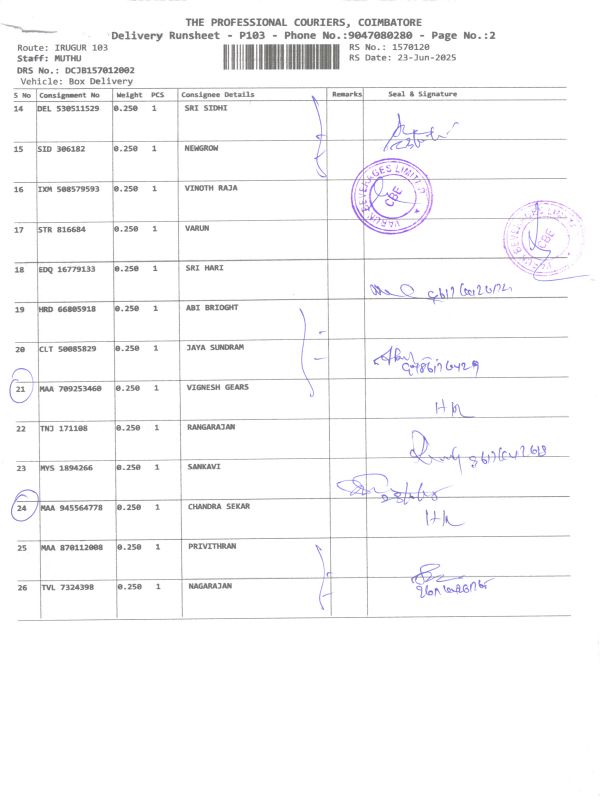 THE PROFESSIONAL COURIERS, COIMBATORE
Delivery Runsheet - P103 - Phone No.:9047080280 - Page No.:2
Route: IRUGUR 103
RS No.: 1570120
Staff: MUTHU
RS Date: 23-Jun-2025
DRS No.: DCJB157012002
Vehicle: Box Delivery
S No Consignment No Weight PCS Consignee Details Remarks Seal & Signature
14 DEL 530511529 0.250 1 SRI SIDHI
15 SID 306182 0.250 1 NEWGROW
16 IXM 508579593 0.250 1 VINOTH RAJA
BEVERAGES LIMITED
CBE
17 STR 816684 0.250 1 VARUN
CBE
18 EDQ 16779133 0.250 1 SRI HARI
19 HRD 66805918 0.250 1 ABI BRIOGHT
20 CLT 50085829 0.250 1 JAYA SUNDRAM
21 MAA 709253460 0.250 1 VIGNESH GEARS
22 TNJ 171108 0.250 1 RANGARAJAN
23 MYS 1894266 0.250 1 SANKAVI
24 MAA 945564778 0.250 1 CHANDRA SEKAR
25 MAA 870112008 0.250 1 PRIVITHRAN
26 TVL 7324398 0.250 1 NAGARAJAN